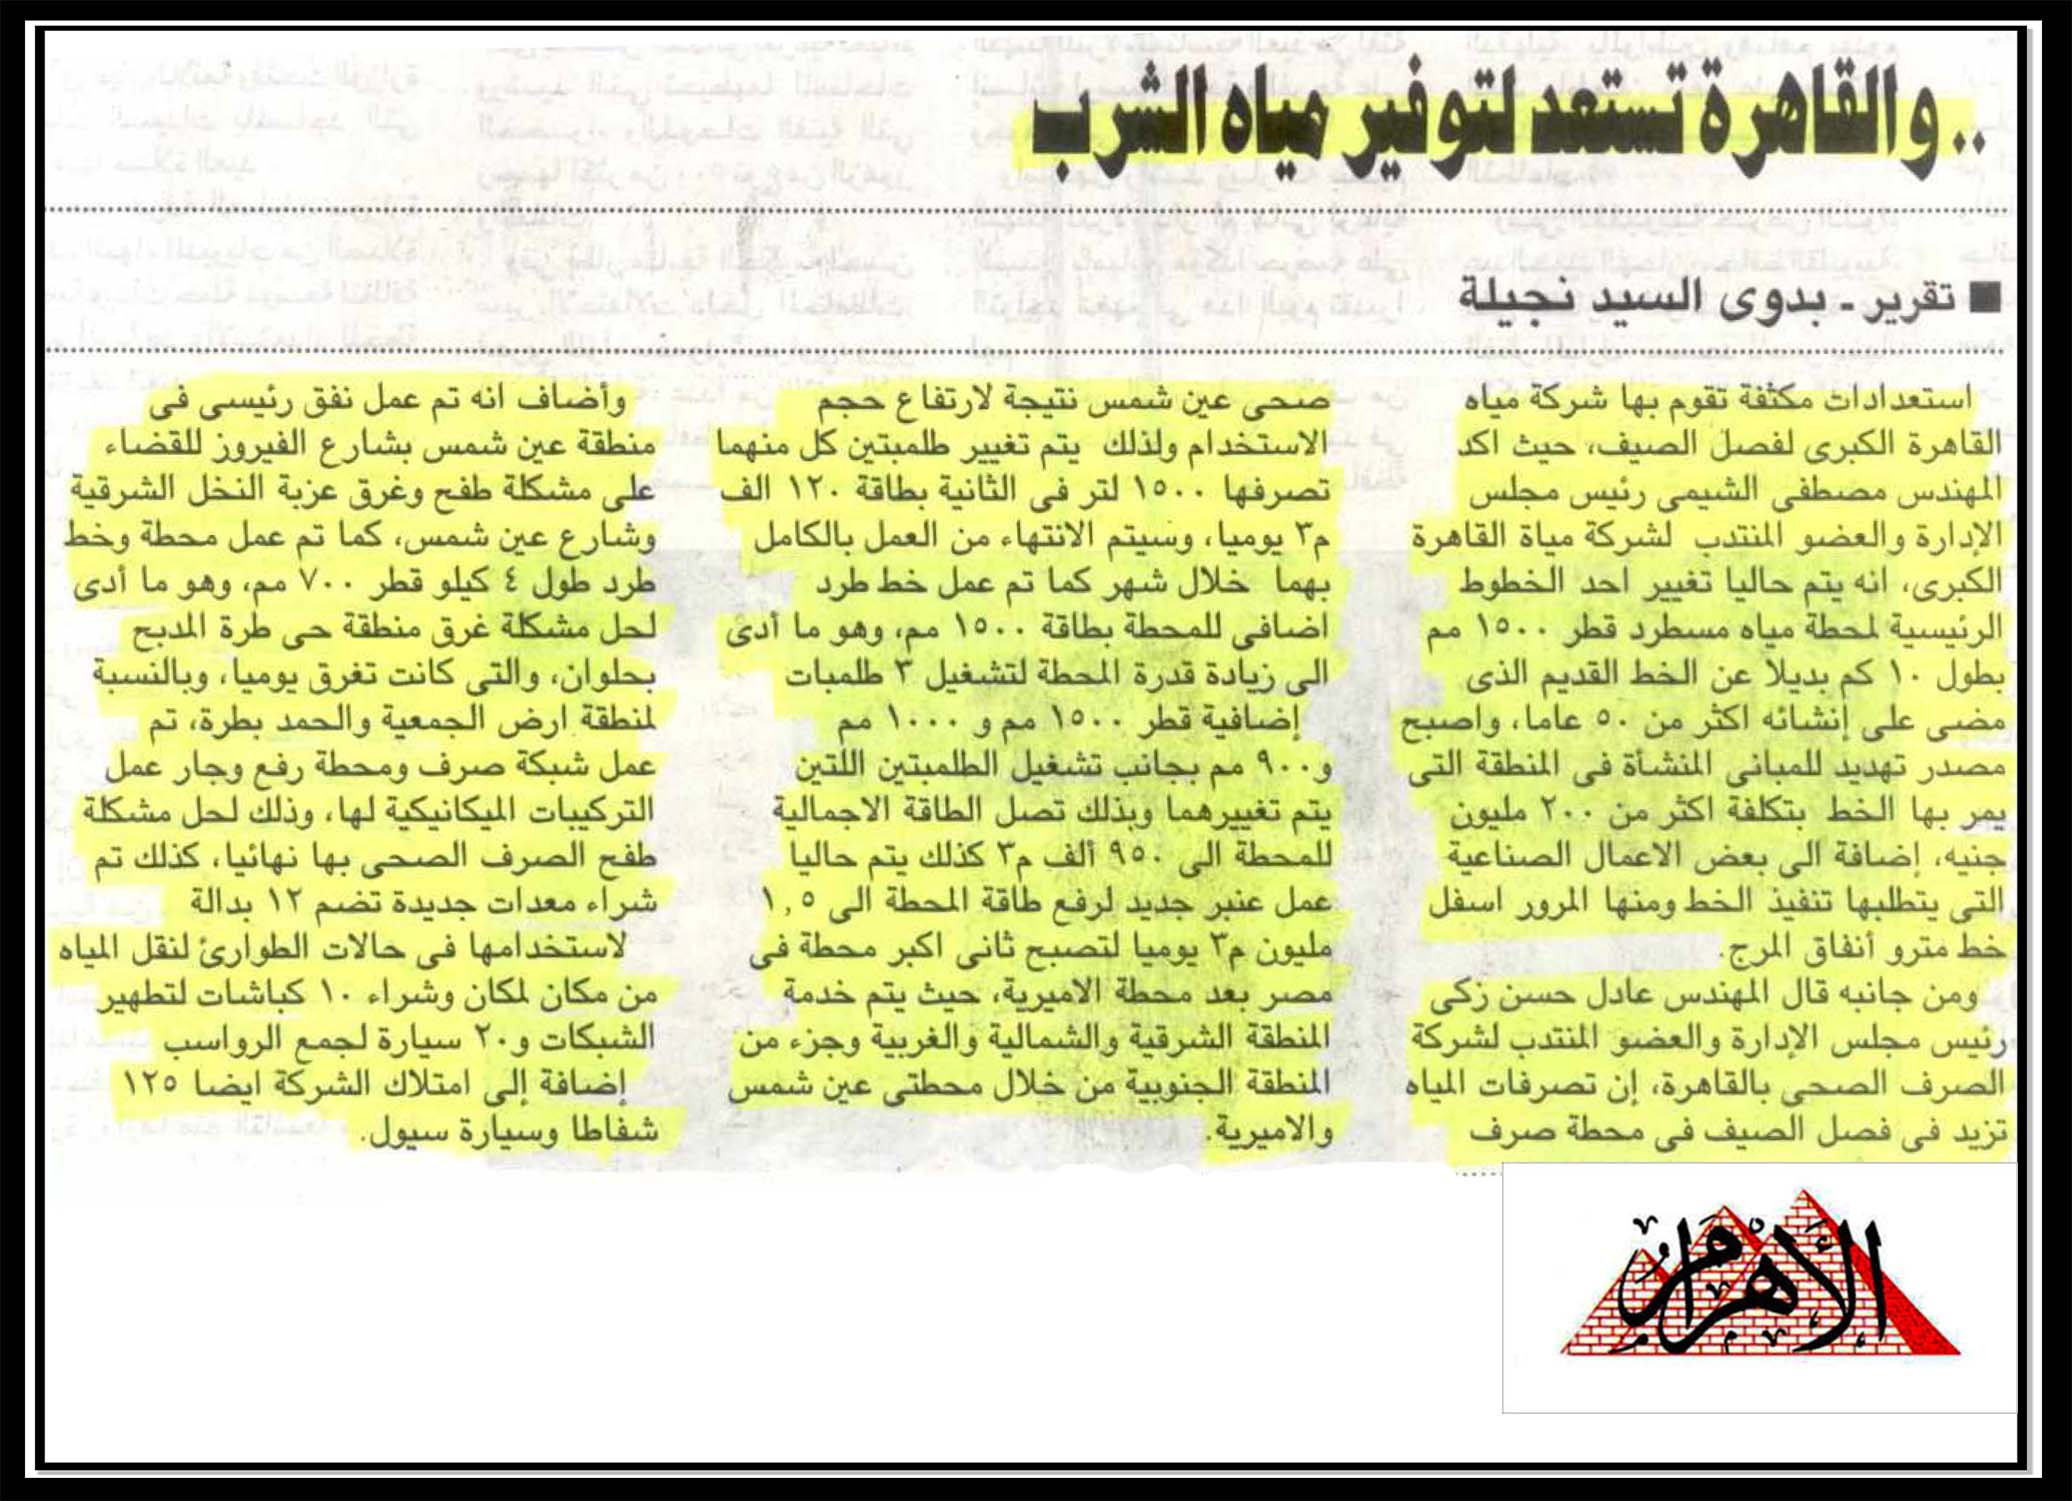 .. والقاهرة تستعد لتوفير مياه الشرب
■ تقرير ـ بدوى السيد نجيلة
استعدادات مكثفة تقوم بها شركة مياه
القاهرة الكبرى لفصل الصيف، حيث اكد
المهندس مصطفى الشيمى رئيس مجلس
الإدارة والعضو المنتدب لشركة مياة القاهرة
الكبرى، انه يتم حاليا تغيير احد الخطوط
الرئيسية لمحطة مياه مسطرد قطر ١٥٠٠ مم
بطول ١٠ كم بديلا عن الخط القديم الذى
مضى على إنشائه اكثر من ٥٠ عاما، واصبح
مصدر تهديد للمبانى المنشأة فى المنطقة التى
يمر بها الخط بتكلفة اكثر من ٢٠٠ مليون
جنيه، إضافة الى بعض الاعمال الصناعية
التى يتطلبها تنفيذ الخط ومنها المرور اسفل
خط مترو أنفاق المرج.
ومن جانبه قال المهندس عادل حسن زكى
رئيس مجلس الإدارة والعضو المنتدب لشركة
الصرف الصحى بالقاهرة، إن تصرفات المياه
تزيد فى فصل الصيف فى محطة صرف
صحى عين شمس نتيجة لارتفاع حجم
الاستخدام ولذلك يتم تغيير طلمبتين كل منهما
تصرفها ١٥٠٠ لتر فى الثانية بطاقة ١٢٠ الف
م٣ يوميا، وسيتم الانتهاء من العمل بالكامل
بهما خلال شهر كما تم عمل خط طرد
اضافى للمحطة بطاقة ١٥٠٠ مم، وهو ما أدى
الى زيادة قدرة المحطة لتشغيل ٣ طلمبات
إضافية قطر ١٥٠٠ مم و ١٠٠٠ مم
و٩٠٠ مم بجانب تشغيل الطلمبتين اللتين
يتم تغييرهما وبذلك تصل الطاقة الاجمالية
للمحطة الى ٩٥٠ ألف م٣ كذلك يتم حاليا
عمل عنبر جديد لرفع طاقة المحطة الى ١,٥
مليون م٣ يوميا لتصبح ثانى اكبر محطة فى
مصر بعد محطة الاميرية، حيث يتم خدمة
المنطقة الشرقية والشمالية والغربية وجزء من
المنطقة الجنوبية من خلال محطتى عين شمس
والاميرية.
وأضاف انه تم عمل نفق رئيسى فى
منطقة عين شمس بشارع الفيروز للقضاء
على مشكلة طفح وغرق عزبة النخل الشرقية
وشارع عين شمس، كما تم عمل محطة وخط
طرد طول ٤ كيلو قطر ٧٠٠ مم، وهو ما أدى
لحل مشكلة غرق منطقة حى طرة المدبح
بحلوان، والتى كانت تغرق يوميا، وبالنسبة
لمنطقة ارض الجمعية والحمد بطرة، تم
عمل شبكة صرف ومحطة رفع وجار عمل
التركيبات الميكانيكية لها، وذلك لحل مشكلة
طفح الصرف الصحى بها نهائيا، كذلك تم
شراء معدات جديدة تضم ١٢ بدالة
لاستخدامها فى حالات الطوارئ لنقل المياه
من مكان لمكان وشراء ١٠ كباشات لتطهير
الشبكات و٢٠ سيارة لجمع الرواسب
إضافة إلى امتلاك الشركة ايضا ١٢٥
شفاطا وسيارة سيول.
الأهرام